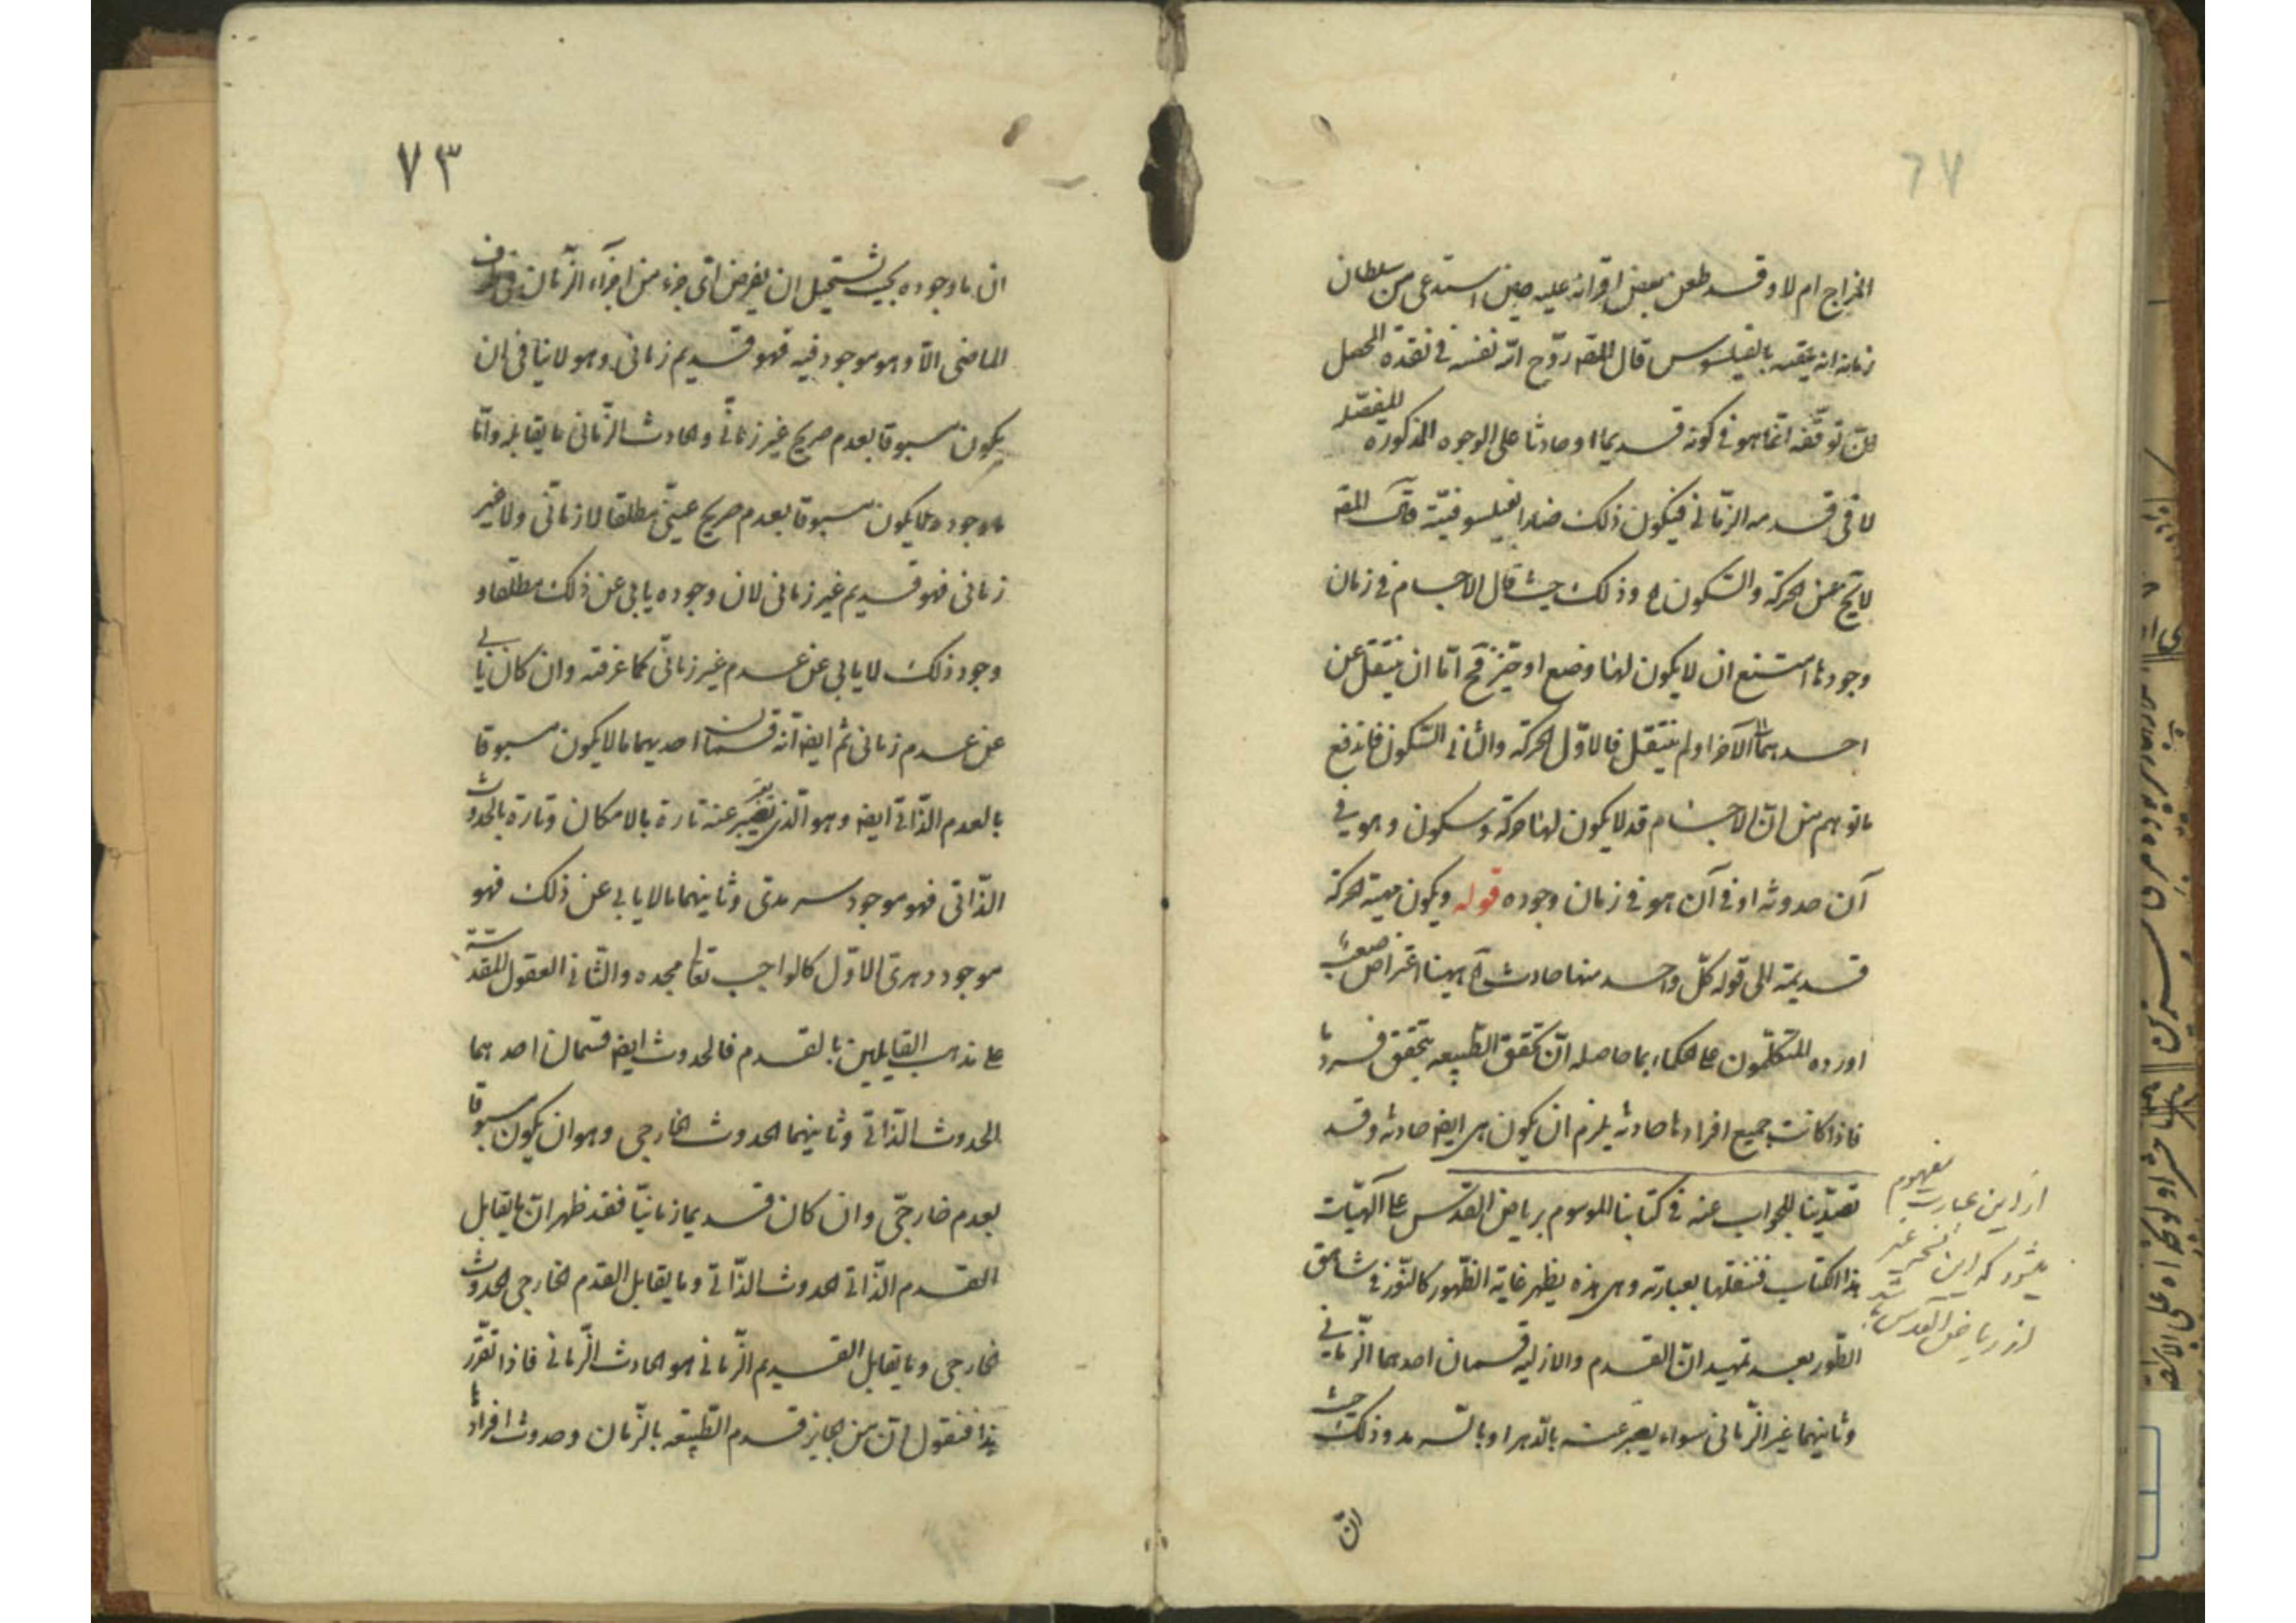 ٦٧
المزاج ام لا وقد طعن بعض اقرانه عليه حين استدعى من سلطان
زمانه ان يلقبه بالفيلسوس قال المصه روّح الله نفسه فى نقده المحصل
لانّ توقّفه انّما هو فى كونه قديما او حادثا على الوجوه المذكوره المفصّله
لا فى قدمه الزمانى فيكون ذلك ضارا بفيلسوفيّته قال المصه
لا يخ عن الحركة والسّكون اه وذلك حيث قال الاجسام فى زمان
وجودها امتنع ان لا يكون لها وضع او حيّز فح امّا ان ينتقل عن
احدهما الى الآخر او لم ينتقل فالاوّل الحركة والثانى السّكون فاندفع
ما توهم من انّ الاجسام قد لا يكون لها حركة وسكون وهو فى
آن حدوثه او فى آن هو فى زمان وجوده قوله ويكون مهية الحركة
قديمة الى قوله كلّ واحد منها حادث اه ههنا اعتراض صعب
اورده المتكلّمون على الحكماء بما حاصله انّ تحقق الطّبيعه بتحقق فرد ما
فاذا كانت جميع افرادها حادثه يلزم ان يكون هى ايضه حادثه وقد
تصدّينا للجواب عنه فى كتابنا الموسوم برياض القدس على آلهيّات
هذا الكتاب فننقلها بعبارته وهى هذه يظهر غاية الظّهور كالنّور فى شاهق
الطّور بعد تمهيد انّ القدم والازليه قسمان احدهما الزّمانى
وثانيهما غير الزّمانى سواء يعبّر عنه بالدّهر او بالسّرمد وذلك حيث
انّ
از اين عبارت مفهوم
ميشود كه اين نسخه غير
از رياض القدس باشد
٧٣
ان ما وجوده بحيث يستحيل ان يفرض اىّ جزء من اجزاء الزّمان فى طرف
الماضى الّا وهو موجود فيه فهو قديم زمانى وهو لا ينافى ان
يكون مسبوقا بعدم صريح غير زمانّى والحادث الزّمانى ما يقابله وامّا
ما وجوده لا يكون مسبوقا بعدم صريح عينّى مطلقا لا زمانّى ولا غير
زمانى فهو قديم غير زمانى لان وجوده يابى عن ذلك مطلقا و
وجود ذلك لا يابى عن عدم غير زمانّى كما عرفته وان كان يابى
عن عدم زمانى ثم ايضه انّه قسمان احديهما ما لا يكون مسبوقا
بالعدم الذّاتى ايضه وهو الّذى يعبّر عنه تارة بالامكان وتارة بالحدوث
الذّاتى فهو موجود سرمدى وثانيهما ما لا يابى عن ذلك فهو
موجود دهرى الاوّل كالواجب تعا مجده والثّانى العقول المقدّسة
على مذهب القايلين بالقدم فالحدوث ايضه قسمان احدهما
الحدوث الذّاتى وثانيهما الحدوث الخارجى وهو ان يكون مسبوقا
بعدم خارجّى وان كان قديما زمانيّا فقد ظهر انّ ما يقابل
القدم الذّاتى الحدوث الذّاتى وما يقابل القدم الخارجى الحدوث
الخارجى وما يقابل القديم الزّمانى هو الحادث الزّمانى فاذا تقرّر
هذا فنقول انّ من الجايز قدم الطّبيعه بالزّمان وحدوث افرادها